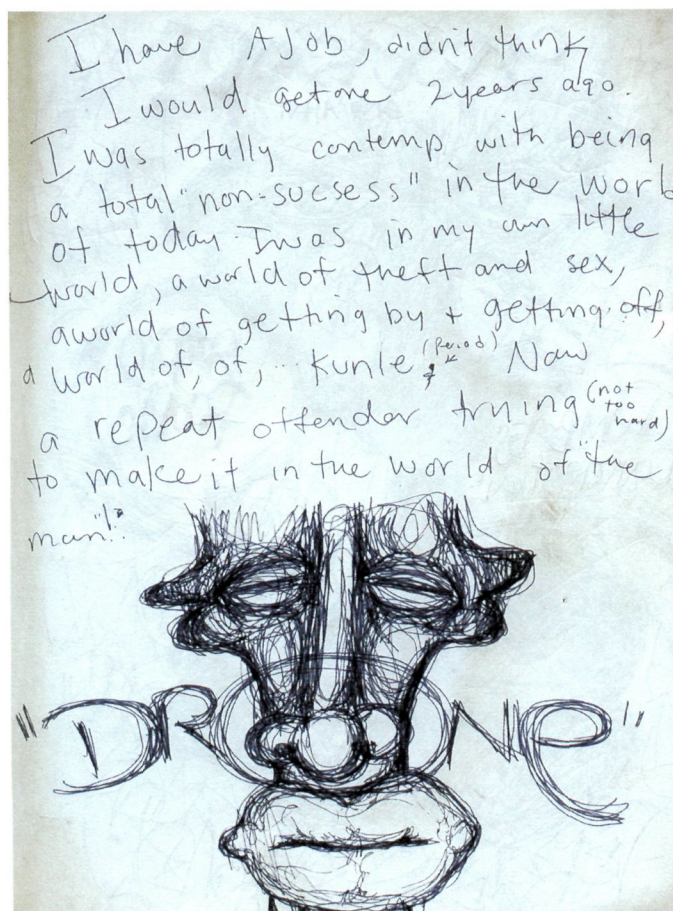 I have A Job, didn't think
I would get one 2 years ago.
I was totally contemp with being
a total "non-sucsess" in the worl
of today. I was in my own little
world, a world of theft and sex,
a world of getting by + getting off,
a world of, of, ... Kunle. (Period) Now
a repeat offender trying (not too hard)
to make it in the world of "the
man"!
"DRONE"